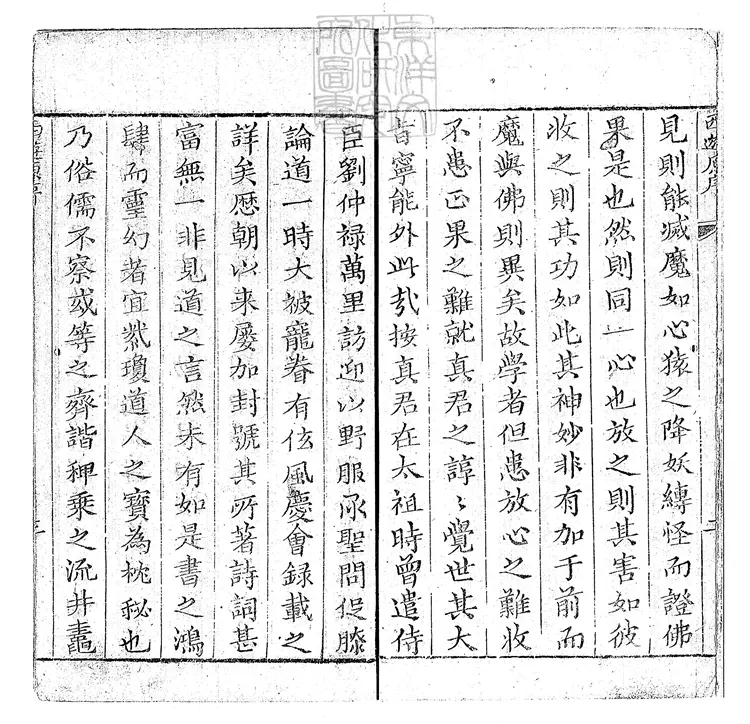 西遊原序
見則能滅魔如心猿之降妖縛怪而證佛
果是也然則同一心也放之則其害如彼
收之則其功如此其神妙非有加于前而
魔與佛則異矣故學者但患放心之難收
不患正果之難就真君之諄〻覺世其大
旨寧能外此哉按真君在太祖時曾遣侍
臣劉仲禄萬里訪迎以野服承聖問促膝
論道一時大被寵眷有玄風慶會録載之
詳矣歷朝以来屢加封號其所著詩詞甚
富無一非見道之言然未有如是書之鴻
肆而靈幻者宜紫瓊道人之寶為枕秘也
乃俗儒不察或等之齊諧稗乘之流井鼃
西遊原序
東洋文化研究所圖書